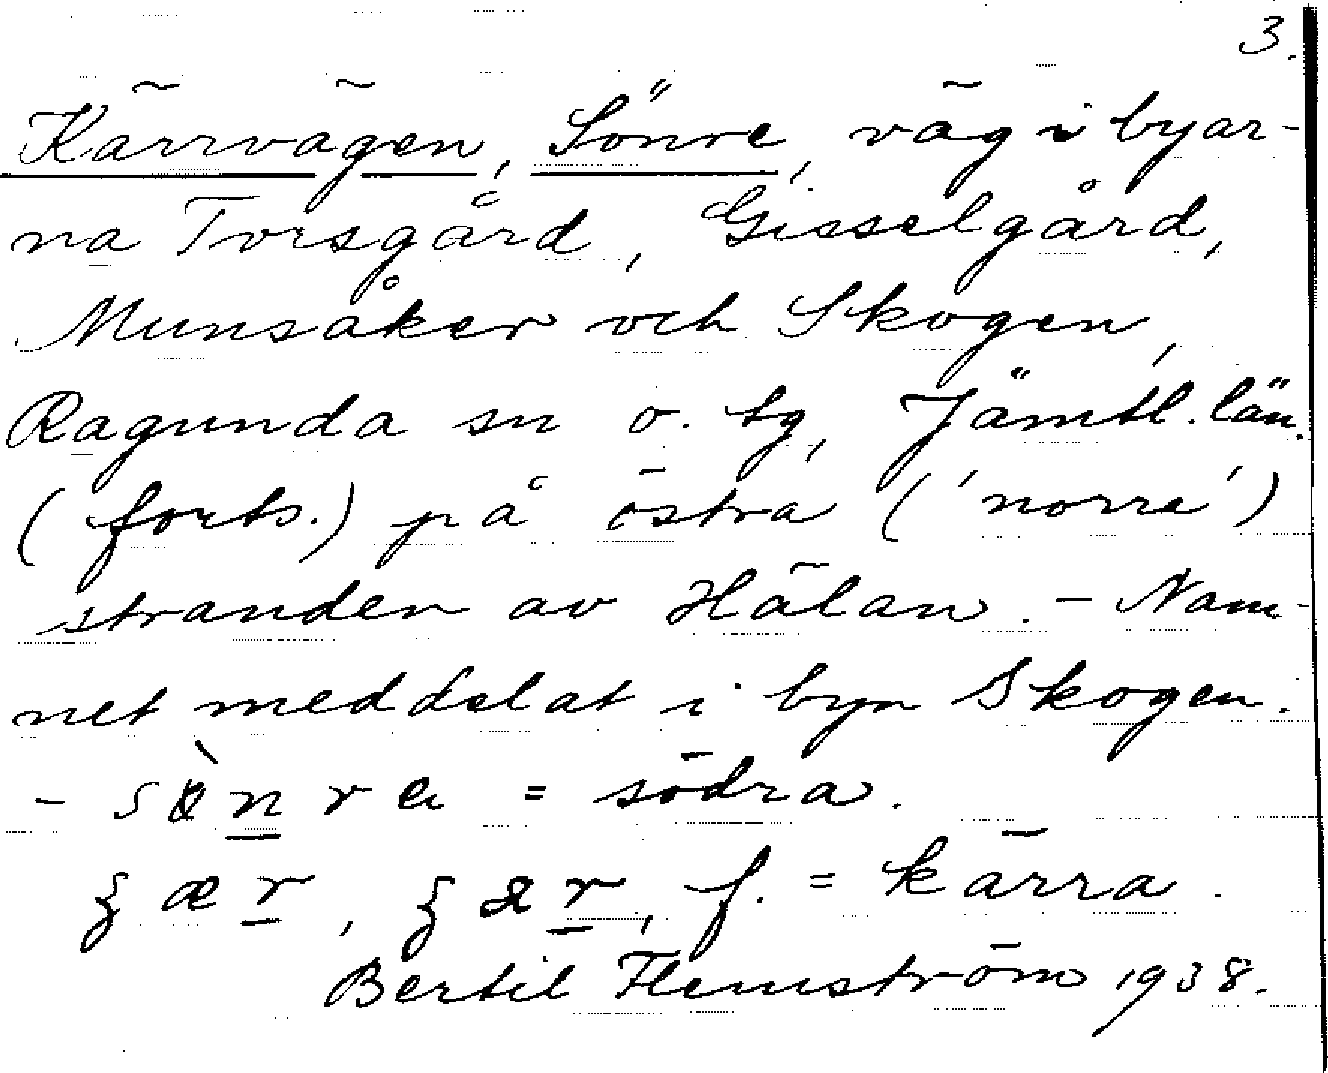 3.
Kärrvägen, Sönre, väg i byar-
na Torsgård, Gisselgård,
Munsåker och Skogen,
Ragunda sn o. tg, Jämtl. län.
(forts.) på östra ('norre')
stranden av Hälån. - Nam-
net meddelat i byn Skogen.
- = södra.
, f. = kärra.
Bertil Flemström 1938.